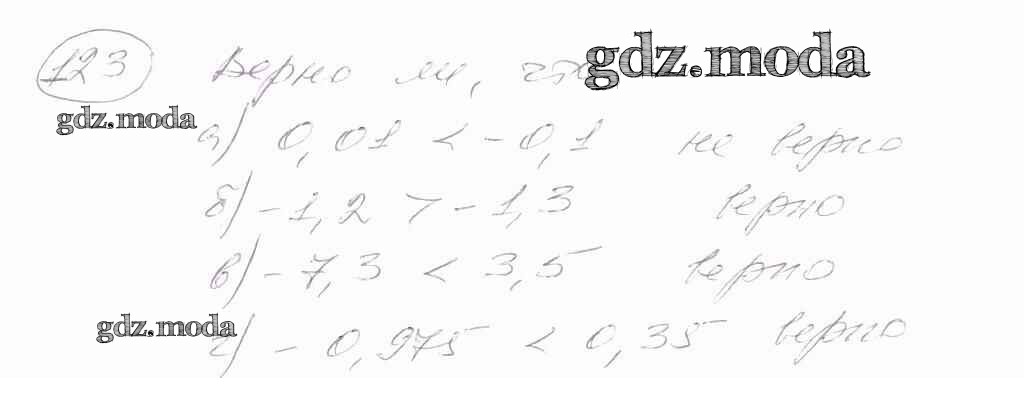 123 Верно ли, что gdz.moda
gdz.moda
а) 0,01 < -0,1 не верно
б) -1,2 > -1,3 верно
в) -7,3 < 3,5 верно
gdz.moda
г) -0,975 < 0,35 верно